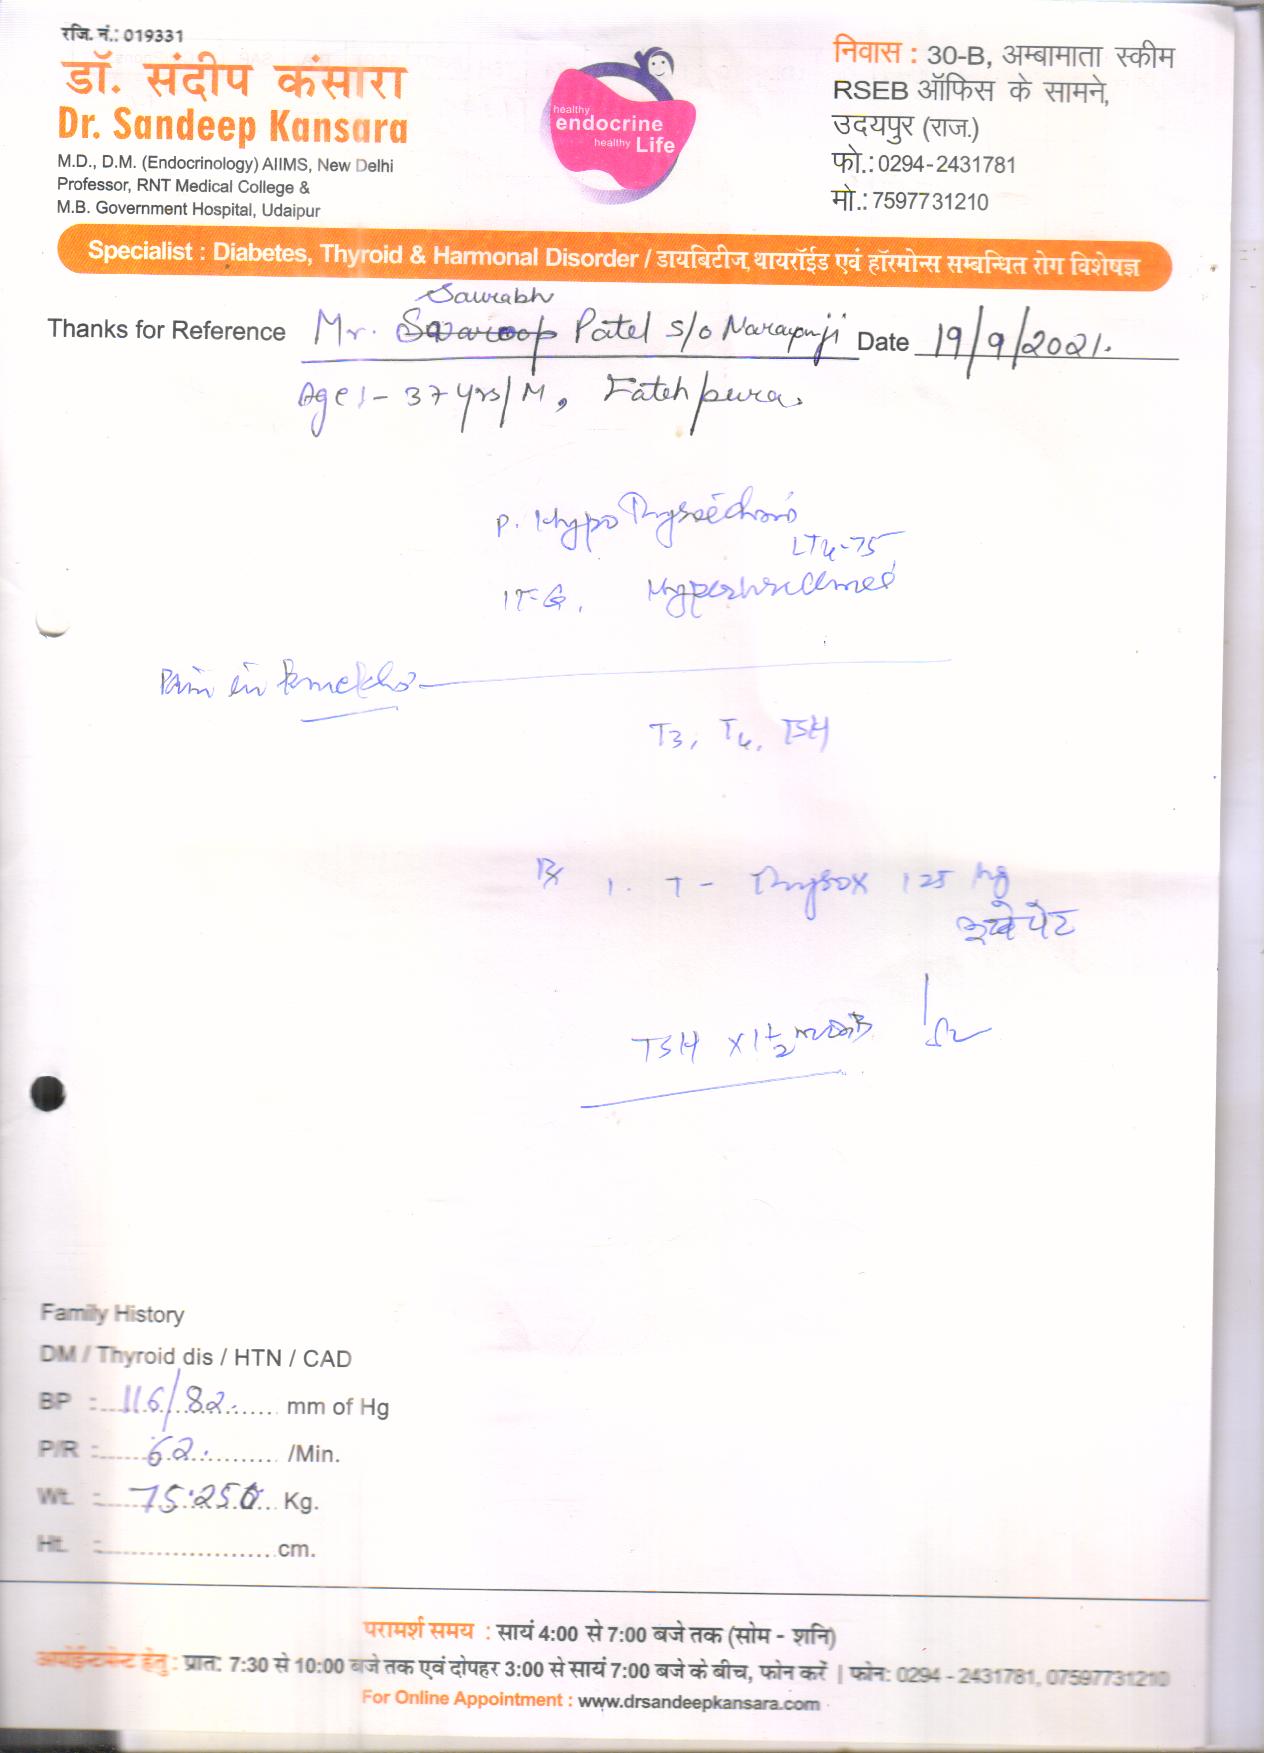 रजि. नं.: 019331
डॉ. संदीप कंसारा
Dr. Sandeep Kansara
M.D., D.M. (Endocrinology) AIIMS, New Delhi
Professor, RNT Medical College &
M.B. Government Hospital, Udaipur
healthy
endocrine
healthy Life
निवास : 30-B, अम्बामाता स्कीम
RSEB ऑफिस के सामने,
उदयपुर (राज.)
फो.: 0294-2431781
मो.: 7597731210
Specialist : Diabetes, Thyroid & Harmonal Disorder / डायबिटीज, थायरॉईड एवं हॉरमोन्स सम्बन्धित रोग विशेषज्ञ
Saurabh
Thanks for Reference Mr. Swaroop Patel s/o Narayanji Date 19/9/2021.
Age:- 37 yrs/M, Fatehpura.
P. Hypothyroidism
LT4-75
IFG,
Pain in
T3, T4, TSH
Rx 1. T- Thyrox 125 µg
भूखे पेट
TSH x 1 1/2 month
Family History
DM / Thyroid dis / HTN / CAD
BP : 116/82 mm of Hg
P/R : 62 /Min.
Wt. : 75.250 Kg.
Ht. : cm.
परामर्श समय : सायं 4:00 से 7:00 बजे तक (सोम - शनि)
अपोईन्टमेन्ट हेतु : प्रातः 7:30 से 10:00 बजे तक एवं दोपहर 3:00 से सायं 7:00 बजे के बीच, फोन करें | फोन: 0294 - 2431781, 07597731210
For Online Appointment : www.drsandeepkansara.com